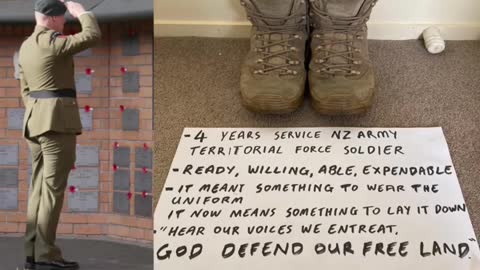 - 4 YEARS SERVICE NZ ARMY
TERRITORIAL FORCE SOLDIER
- READY, WILLING, ABLE, EXPENDABLE
- IT MEANT SOMETHING TO WEAR THE
UNIFORM
IT NOW MEANS SOMETHING TO LAY IT DOWN
- "HEAR OUR VOICES WE ENTREAT,
GOD DEFEND OUR FREE LAND."